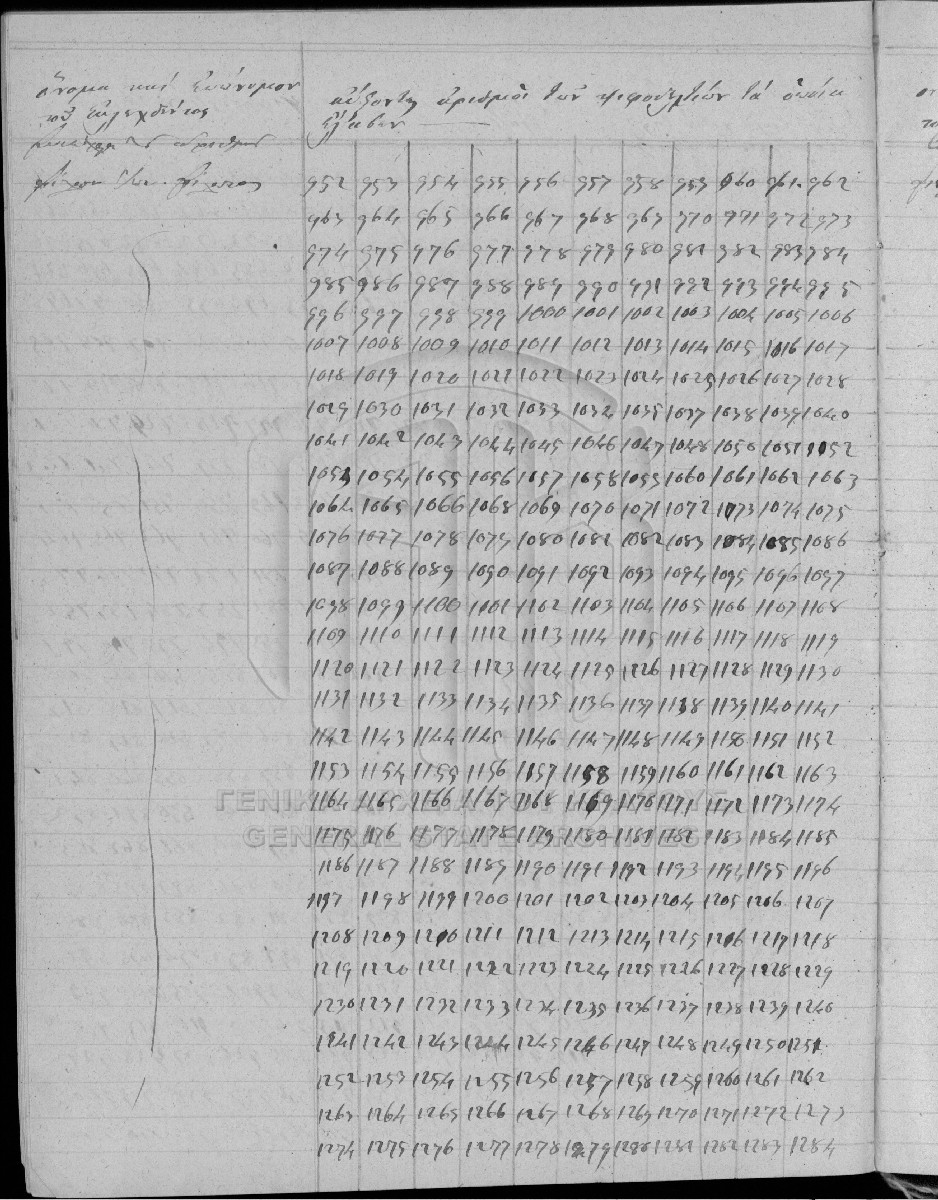 ὄνομα καὶ ἐπώνυμον
τοῦ ἐκλεχθέντος
αὔξοντες ἀριθμοὶ τῶν ψηφοδελτίων τὰ ὁποῖα
ἔλαβεν
952 953 954 955 956 957 958 959 960 961 962
963 964 965 966 967 968 969 970 971 972 973
974 975 976 977 978 979 980 981 982 983 984
985 986 987 988 989 990 991 992 993 994 995
996 997 998 999 1000 1001 1002 1003 1004 1005 1006
1007 1008 1009 1010 1011 1012 1013 1014 1015 1016 1017
1018 1019 1020 1021 1022 1023 1024 1025 1026 1027 1028
1029 1030 1031 1032 1033 1034 1035 1037 1038 1039 1040
1041 1042 1043 1044 1045 1046 1047 1048 1050 1051 1052
1053 1054 1055 1056 1057 1058 1059 1060 1061 1062 1063
1064 1065 1066 1068 1069 1070 1071 1072 1073 1074 1075
1076 1077 1078 1079 1080 1081 1082 1083 1084 1085 1086
1087 1088 1089 1090 1091 1092 1093 1094 1095 1096 1097
1098 1099 1100 1101 1102 1103 1104 1105 1106 1107 1108
1109 1110 1111 1112 1113 1114 1115 1116 1117 1118 1119
1120 1121 1122 1123 1124 1125 1126 1127 1128 1129 1130
1131 1132 1133 1134 1135 1136 1137 1138 1139 1140 1141
1142 1143 1144 1145 1146 1147 1148 1149 1150 1151 1152
1153 1154 1155 1156 1157 1158 1159 1160 1161 1162 1163
1164 1165 1166 1167 1168 1169 1170 1171 1172 1173 1174
ΓΕΝΙΚΑ ΑΡΧΕΙΑ ΤΟΥ ΚΡΑΤΟΥΣ
GENERAL STATE ARCHIVES
1175 1176 1177 1178 1179 1180 1181 1182 1183 1184 1185
1186 1187 1188 1189 1190 1191 1192 1193 1194 1195 1196
1197 1198 1199 1200 1201 1202 1203 1204 1205 1206 1207
1208 1209 1210 1211 1212 1213 1214 1215 1216 1217 1218
1219 1220 1221 1222 1223 1224 1225 1226 1227 1228 1229
1230 1231 1232 1233 1234 1235 1236 1237 1238 1239 1240
1241 1242 1243 1244 1245 1246 1247 1248 1249 1250 1251
1252 1253 1254 1255 1256 1257 1258 1259 1260 1261 1262
1263 1264 1265 1266 1267 1268 1269 1270 1271 1272 1273
1274 1275 1276 1277 1278 1279 1280 1281 1282 1283 1284